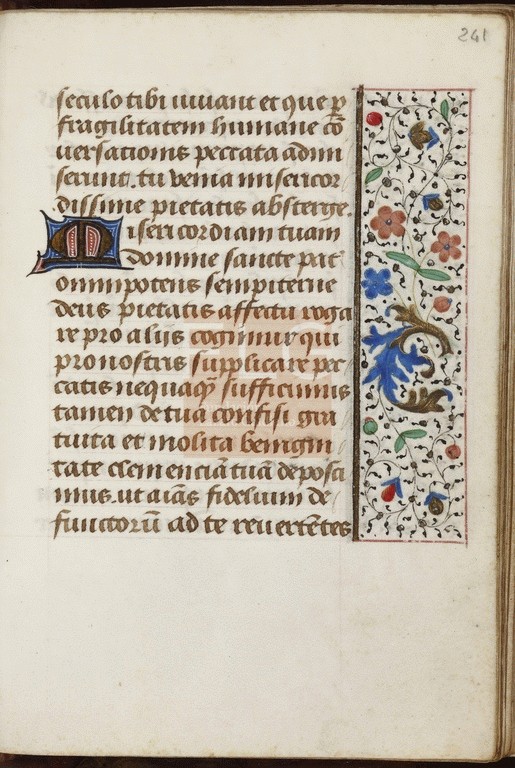 241
seculo tibi uiuant et que ꝑ
fragilitatem humane cō
uersationis peccata admi
serunt. tu venia misericor
dissime pietatis absterge.
Misericordiam tuam
domine sancte pat
omnipotens sempiterne
deus pietatis affectu roga
re pro alijs cogimur qui
pro nostris supplicare pec
catis nequaqꝫ sufficimus
tamen de tua confisi gra
tuita et molita benigni
tate clemenciā tuā deposci
mus. ut aīas fidelium de
functorū ad te reuertētes